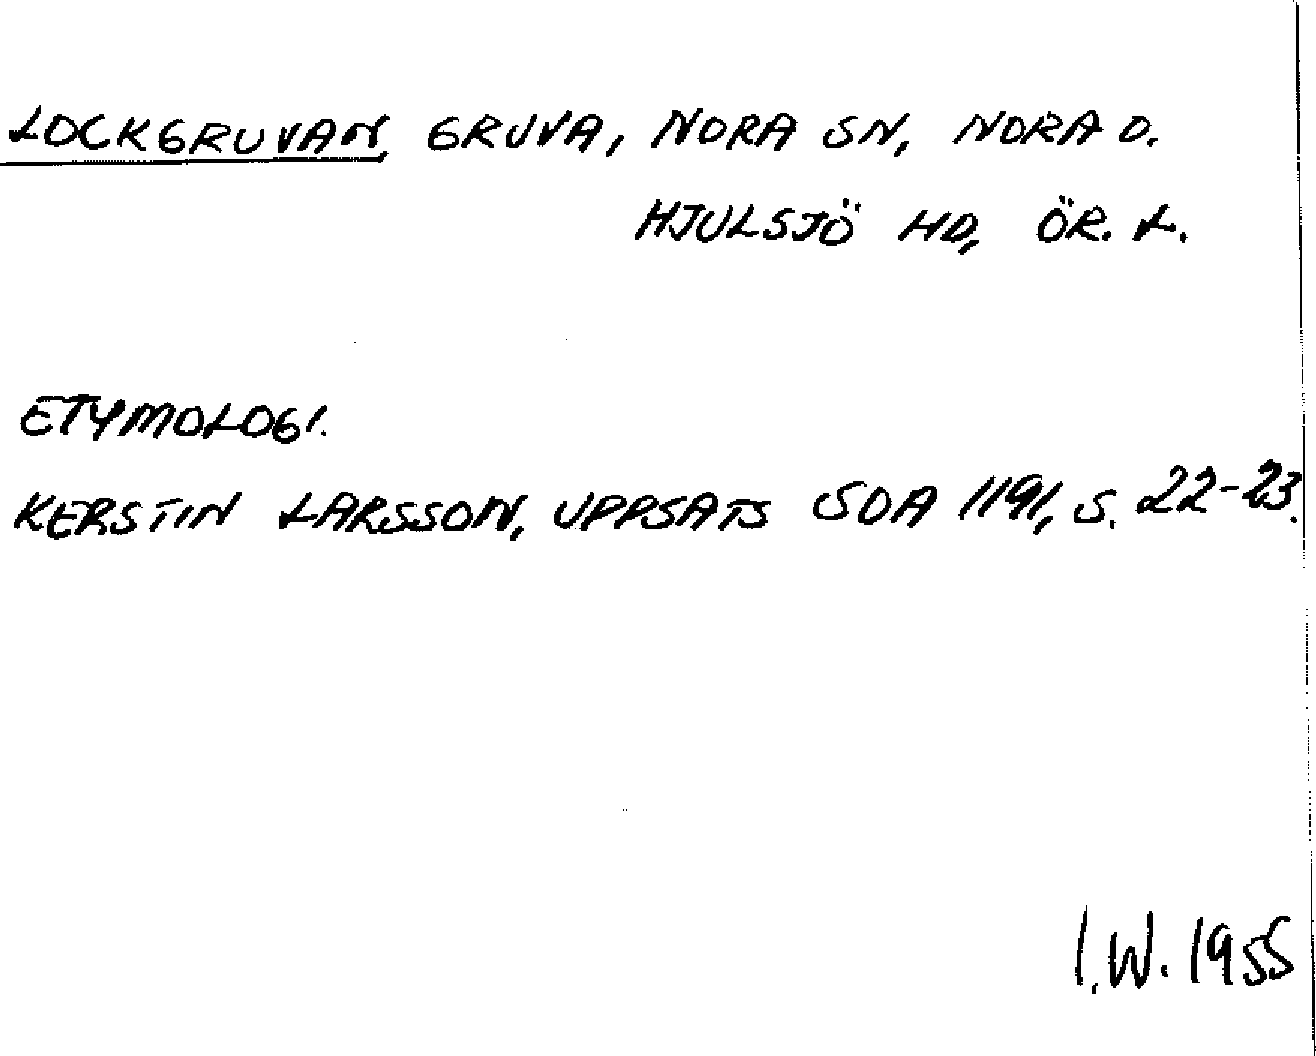 LOCKGRUVAN, GRUVA, NORA SN, NORA O.
HJULSJÖ HD, ÖR. L.
ETYMOLOGI.
KERSTIN LARSSON, UPPSATS SOA 1191, S. 22-23.
I.W. 1955